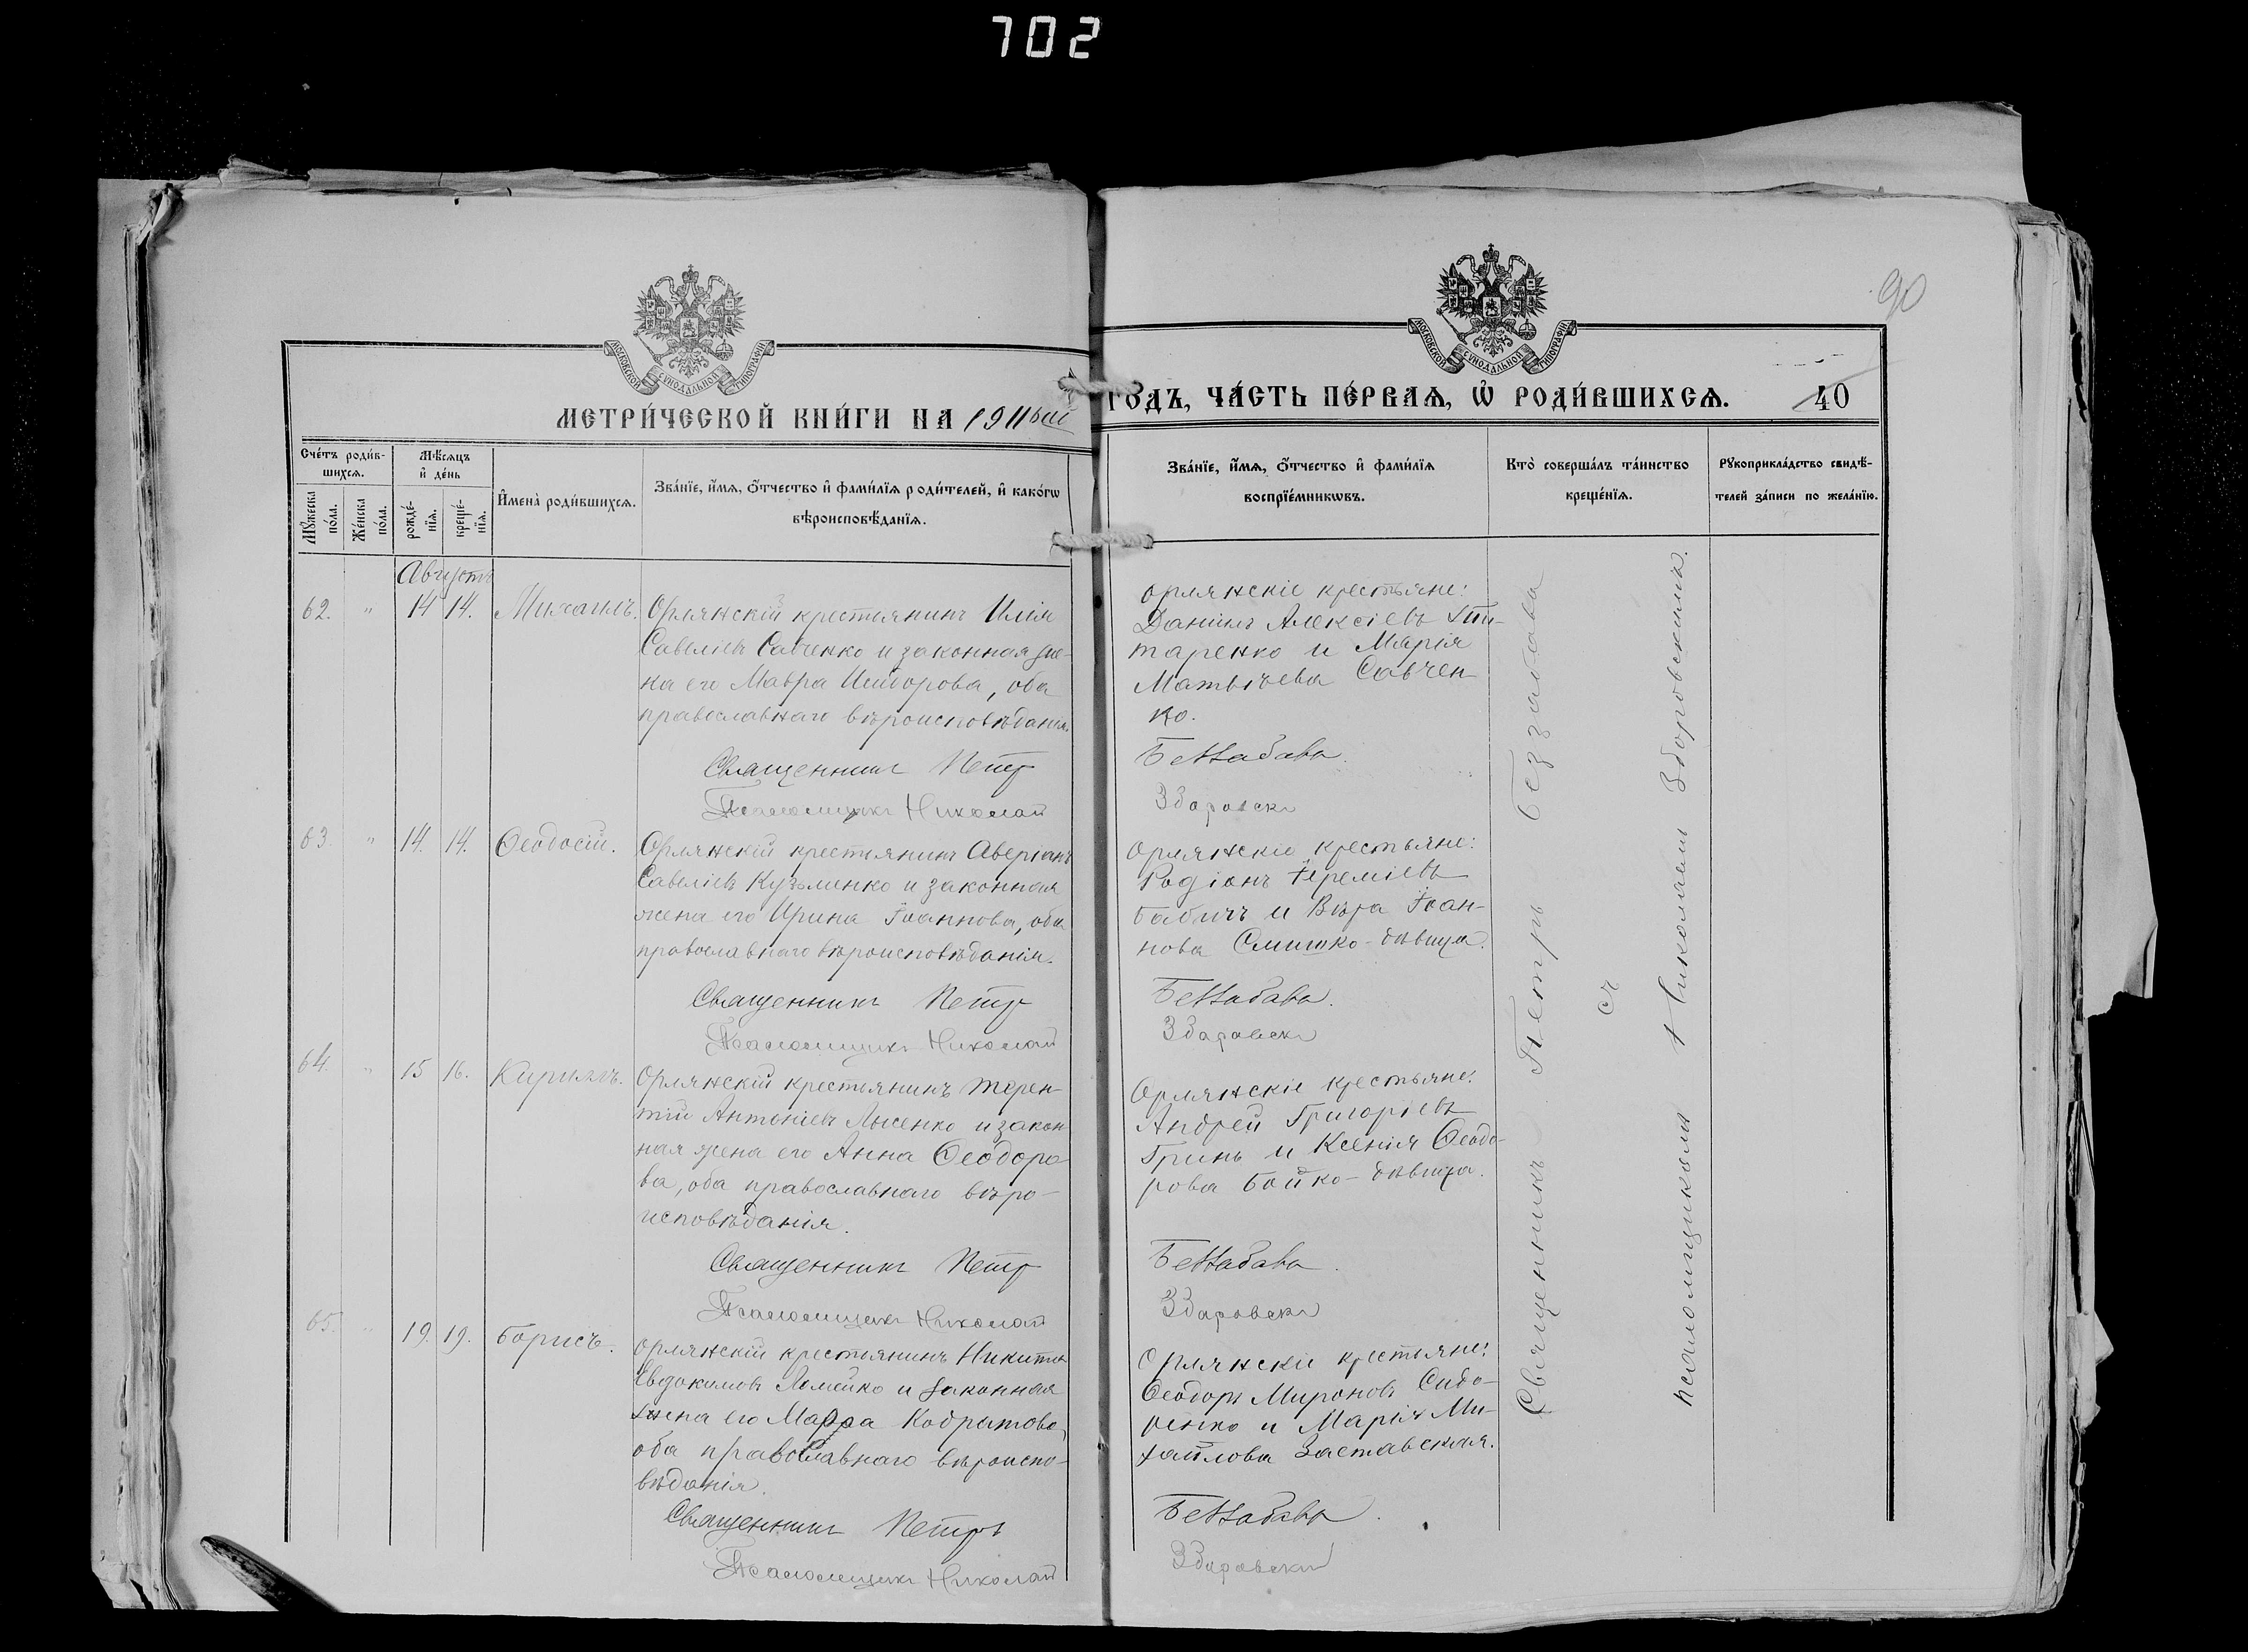 702
90
МОСКОВСКОЙ СУНОДАЛЬНОЙ ТИПОГРАФІИ
МОСКОВСКОЙ СУНОДАЛЬНОЙ ТИПОГРАФІИ
МЕТРИ́ЧЕСКОЙ КНИ́ГИ НА 1911ый
ГОДЪ, ЧА́СТЬ ПЕ́РВАѦ, Ѡ҆ РОДИ́ВШИХСѦ.
40
Сче́тъ роди́в-
шихсѧ.
Мꙋжеска по́ла.
Же́нска по́ла.
Мѣ́сѧцъ
и҆ де́нь
рожде́-
нїѧ.
креще́-
нїѧ.
И҆мена̀ роди́вшихсѧ.
Зва́нїе, и҆́мѧ, ѻ҆́тчество и҆ фами́лїѧ роди́телей, и҆ како́гѡ
вѣроисповѣ́данїѧ.
Зва́нїе, и҆́мѧ, ѻ҆́тчество и҆ фами́лїѧ
воспрїе́мникѡвъ.
Кто̀ соверша́лъ та́инство
креще́нїѧ.
Рꙋкоприкла́дство свидѣ́-
телей за́писи по жела́нїю.
Августъ
62. " 14 14. Михаилъ.
Орлянскій крестьянинъ Илія
Савеліевъ Савченко и законная же-
на его Мавра Исидорова, оба
православнаго вѣроисповѣданія.
Священникъ Петръ
Псаломщикъ Николай
Орлянскіе крестьяне:
Даніилъ Алексіевъ Ти-
таренко и Марія
Матвѣева Савчен
ко.
Беззабава.
Здоровскій
63. " 14. 14. Ѳеодосій.
Орлянскій крестьянинъ Аверіанъ
Савеліевъ Кузьменко и законная
жена его Ирина Іоаннова, оба
православнаго вѣроисповѣданія.
Священникъ Петръ
Псаломщикъ Николай
Орлянскіе крестьяне:
Родіонъ Іереміевъ
Бабичъ и Вѣра Іоан-
нова Смишко - дѣвица.
Беззабава.
Здоровскій
64. " 15 16. Кириллъ.
Орлянскій крестьянинъ Терен-
тій Антоніевъ Лысенко и закон
ная жена его Анна Ѳеодоро
ва, оба православнаго вѣро-
исповѣданія.
Священникъ Петръ
Псаломщикъ Николай
Орлянскіе крестьяне:
Андрей Григоріевъ
Гринь и Ксенія Ѳеодо-
рова Бойко - дѣвица.
Беззабава.
Здоровскій
65. " 19. 19. Борисъ.
Орлянскій крестьянинъ Никита
Евдокимовъ Ломейко и законная
жена его Марѳа Кодратова,
оба православнаго вѣроиспо-
вѣданія.
Священникъ Петръ
Псаломщикъ Николай
Орлянскіе крестьяне:
Ѳеодоръ Мироновъ Сидо-
ренко и Марія Ми-
хайлова Заставская.
Беззабава.
Здоровскій
Священникъ Петръ Беззабава
съ
псаломщикомъ Николаемъ Здоровскимъ.